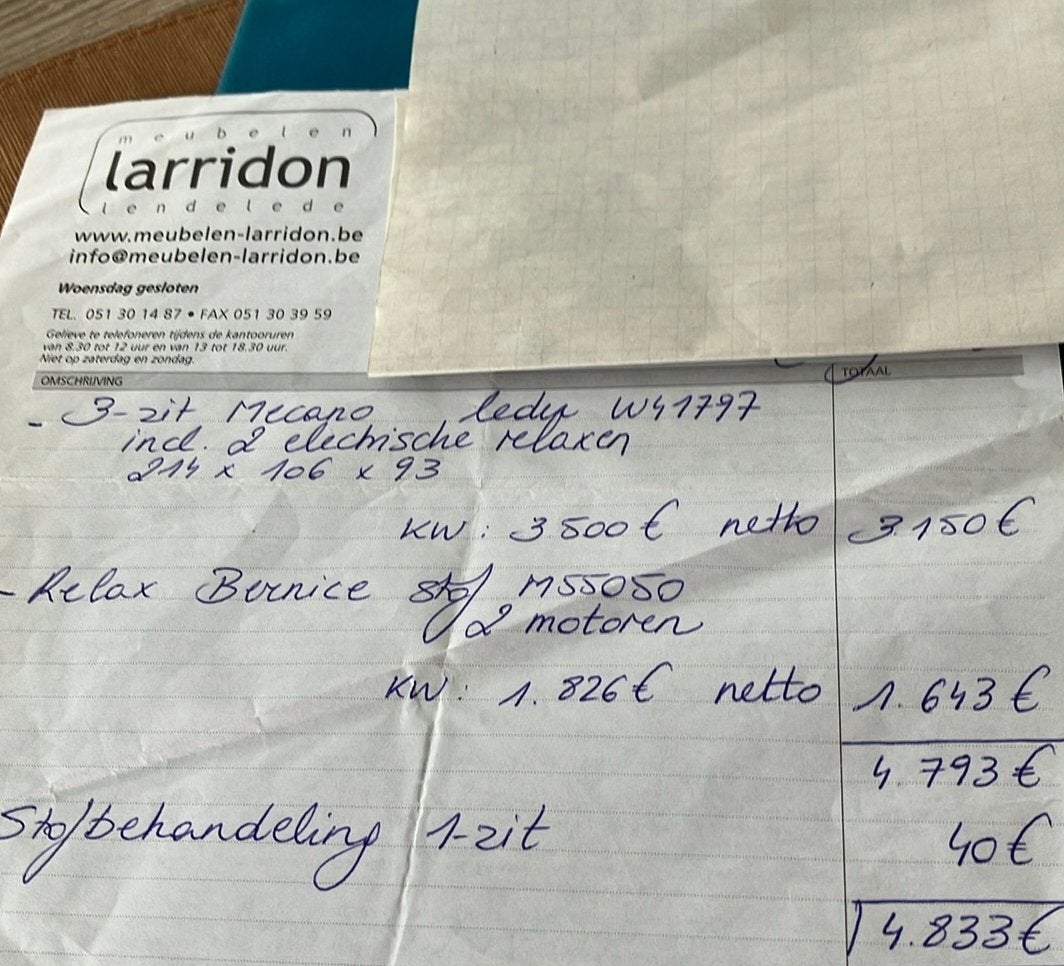 meubelen
larridon
lendelede
www.meubelen-larridon.be
info@meubelen-larridon.be
Woensdag gesloten
TEL. 051 30 14 87 • FAX 051 30 39 59
Gelieve te telefoneren tijdens de kantooruren
van 8.30 tot 12 uur en van 13 tot 18.30 uur.
Niet op zaterdag en zondag.
OMSCHRIJVING TOTAAL
- 3-zit Mecano leder W41797
incl. 2 electrische relaxen
214 x 106 x 93
KW: 3.500€ netto 3.150€
- Relax Bernice stof M55050
2 motoren
KW: 1.826€ netto 1.643€
4.793€
Stofbehandeling 1-zit 40€
4.833€